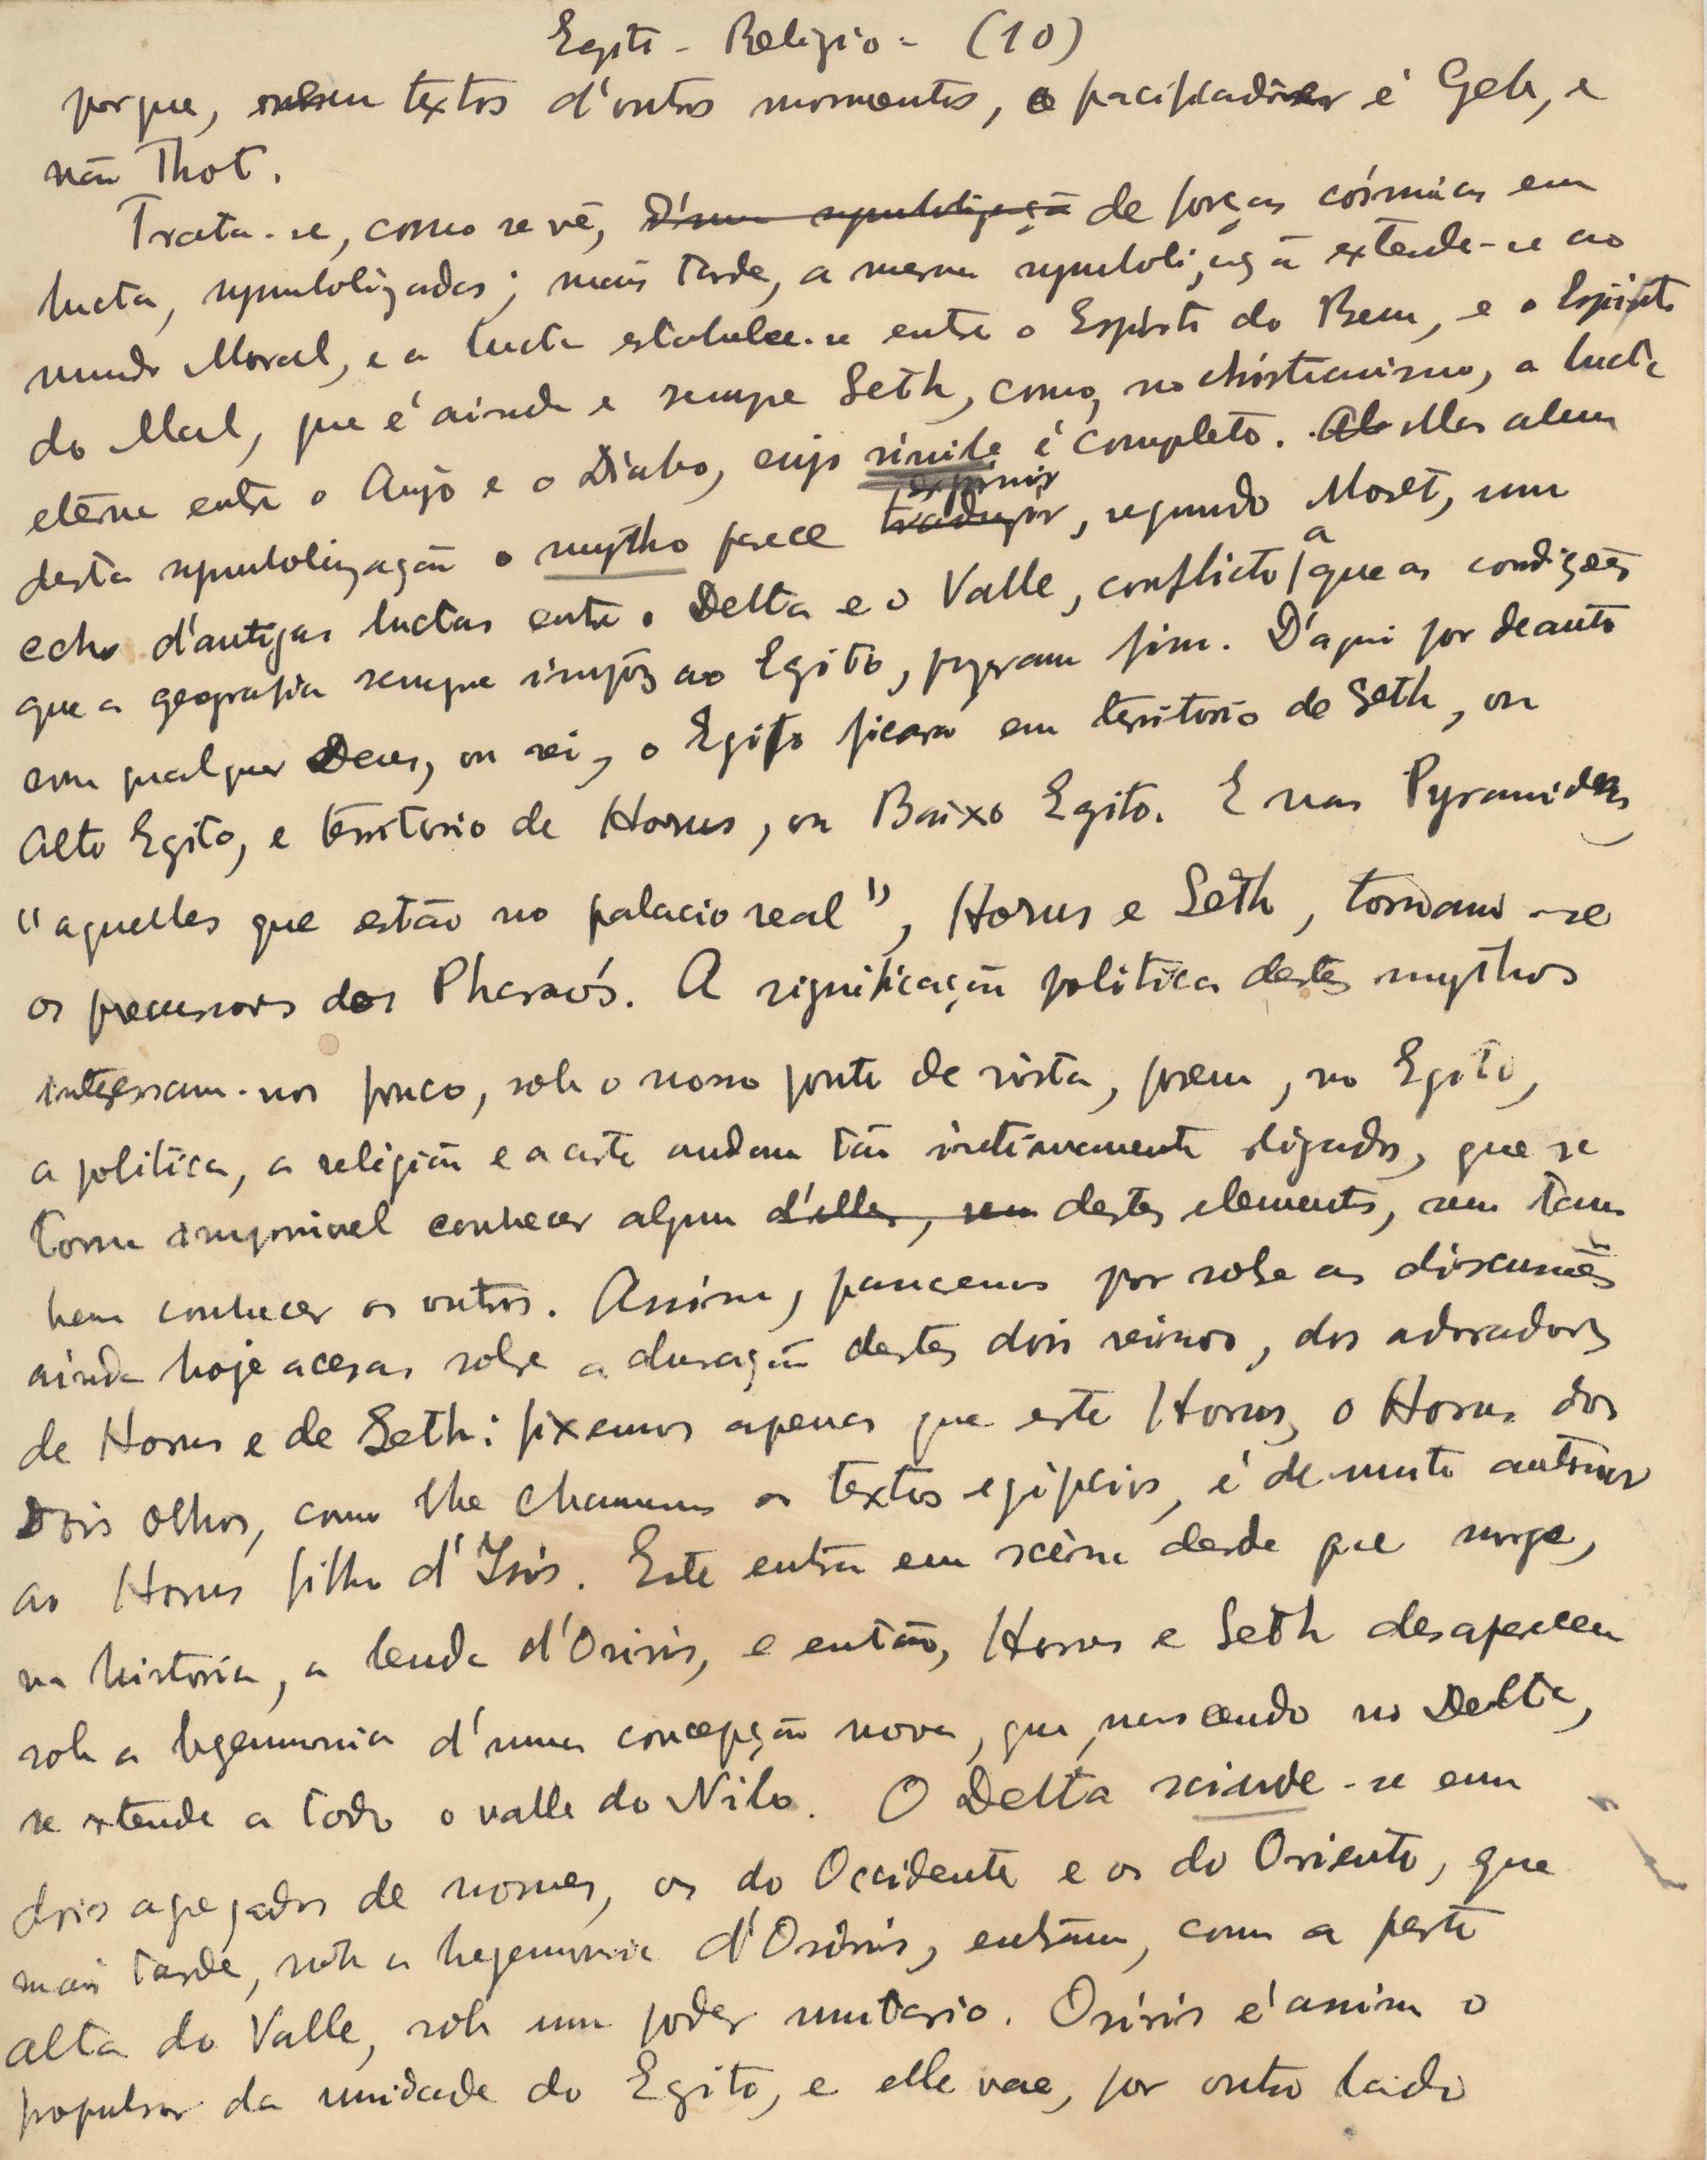 Egito - Religião - (10)
porque, em textos d'outros momentos, o pacificador é Geb, e
não Thot.
Trata-se, como se vê, d'uma symbolização de forças cósmicas em
lucta, symbolizadas; mais tarde, a mesma symbolização extende-se ao
mundo Moral, e a lucta estabelece-se entre o Espirito do Bem, e o Espirito
do Mal, que é ainda e sempre Seth, como, no christianismo, a lucta
eterna entre o Anjo e o Diabo, cujo simile é completo. Mas alem
desta symbolização o mytho parece traduzir exprimir, segundo Moret, um
echo d'antigas luctas entre o Delta e o Valle, conflicto a que as condições
que a geografia sempre impôz ao Egito, puzeram fim. D'aqui por deante
com qualquer Deus, ou rei, o Egito ficará em territorio de Seth, ou
Alto Egito, e territorio de Horus, ou Baixo Egito. E nas Pyramides,
"aquelles que estão no palacio real", Horus e Seth, tornam-se
os precursores dos Pharaós. A significação politica destes mythos
interessam-nos pouco, sob o nosso ponto de vista, porem, no Egito,
a politica, a religião e a arte andam tão intimamente ligados, que se
torna impossivel conhecer algum d'elles, sem destes elementos, sem tam
bem conhecer os outros. Assim, passemos por sobre as discussões
ainda hoje acesas sobre a duração destes dois reinos, dos adoradores
de Horus e de Seth: fixemos apenas que este Horus, o Horus dos
Dois olhos, como lhe chamam os textos egipcios, é de muito anterior
ao Horus filho d'Isis. Este entra em scena desde que surge,
na historia, a lenda d'Osiris, e então, Horus e Seth desaparecem
sob a hegemonia d'uma concepção nova, que, nascendo no Delta,
se extende a todo o valle do Nilo. O Delta scinde-se em
dois agregados de nomes, os do Occidente e os do Oriente, que
mais tarde, sob a hegemonia d'Osiris, entram, com a parte
alta do Valle, sob um poder unitario. Osiris é assim o
propulsor da unidade do Egito, e elle vae, por outro lado